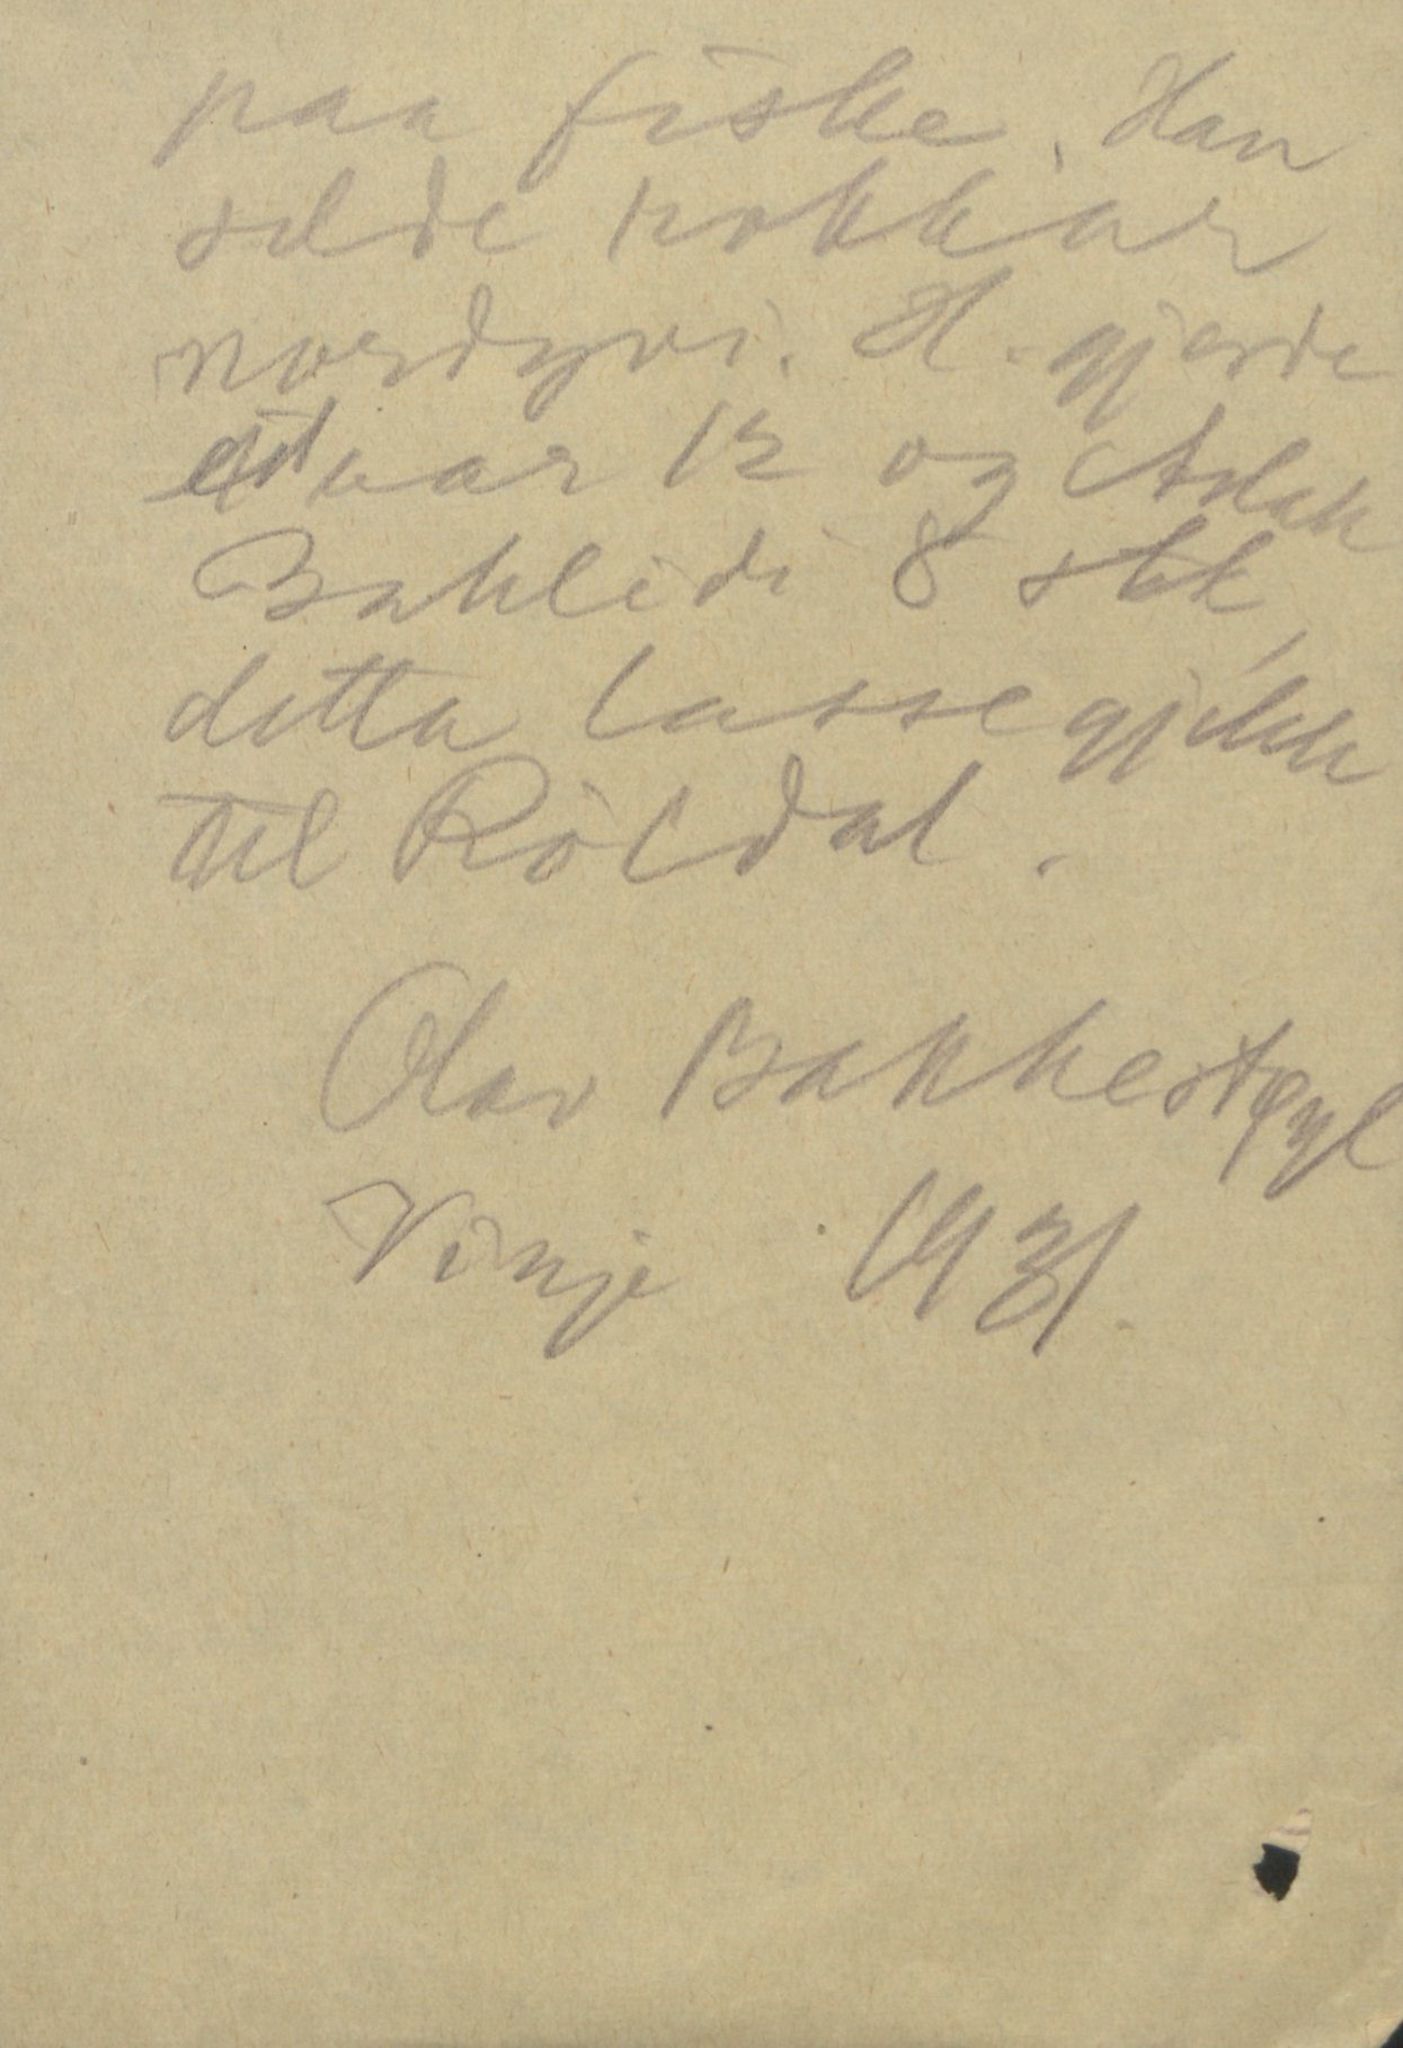 paa fiske. Han
selde rokkar
nordyvi. H. gjorde
eit aar 12 og Aslak
Baklidi 8 stk,
detta lasse gjekk
til Röldal.
Olav Bakkestøyl
Vinje 1931.